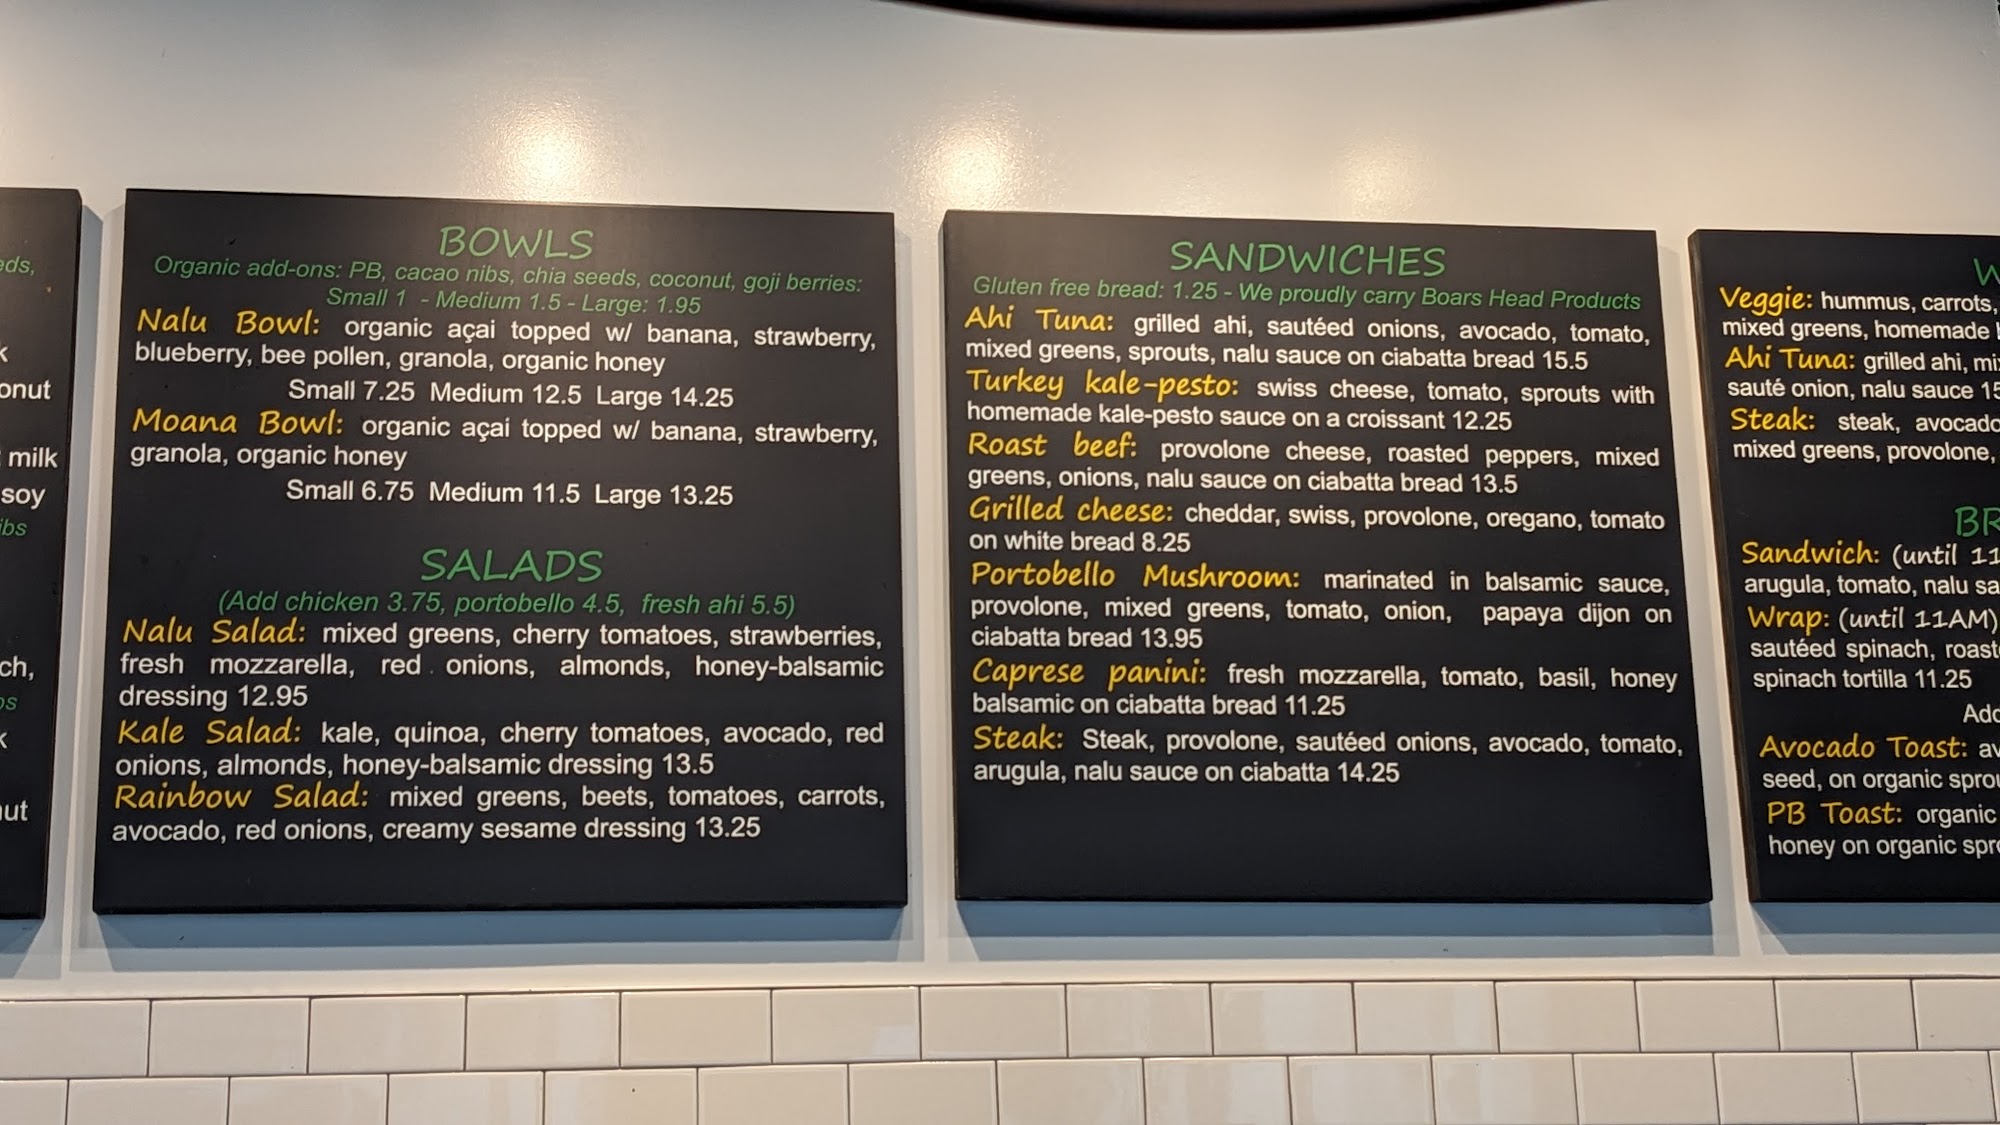 eds,
k
onut
milk
soy
ibs
ch,
os
k
ut
BOWLS
Organic add-ons: PB, cacao nibs, chia seeds, coconut, goji berries:
Small 1 - Medium 1.5 - Large: 1.95
Nalu Bowl: organic açai topped w/ banana, strawberry,
blueberry, bee pollen, granola, organic honey
Small 7.25 Medium 12.5 Large 14.25
Moana Bowl: organic açai topped w/ banana, strawberry,
granola, organic honey
Small 6.75 Medium 11.5 Large 13.25
SALADS
(Add chicken 3.75, portobello 4.5, fresh ahi 5.5)
Nalu Salad: mixed greens, cherry tomatoes, strawberries,
fresh mozzarella, red onions, almonds, honey-balsamic
dressing 12.95
Kale Salad: kale, quinoa, cherry tomatoes, avocado, red
onions, almonds, honey-balsamic dressing 13.5
Rainbow Salad: mixed greens, beets, tomatoes, carrots,
avocado, red onions, creamy sesame dressing 13.25
SANDWICHES
Gluten free bread: 1.25 - We proudly carry Boars Head Products
Ahi Tuna: grilled ahi, sautéed onions, avocado, tomato,
mixed greens, sprouts, nalu sauce on ciabatta bread 15.5
Turkey kale-pesto: swiss cheese, tomato, sprouts with
homemade kale-pesto sauce on a croissant 12.25
Roast beef: provolone cheese, roasted peppers, mixed
greens, onions, nalu sauce on ciabatta bread 13.5
Grilled cheese: cheddar, swiss, provolone, oregano, tomato
on white bread 8.25
Portobello Mushroom: marinated in balsamic sauce,
provolone, mixed greens, tomato, onion, papaya dijon on
ciabatta bread 13.95
Caprese panini: fresh mozzarella, tomato, basil, honey
balsamic on ciabatta bread 11.25
Steak: Steak, provolone, sautéed onions, avocado, tomato,
arugula, nalu sauce on ciabatta 14.25
W
Veggie: hummus, carrots,
mixed greens, homemade
Ahi Tuna: grilled ahi, mi
sauté onion, nalu sauce 15
Steak: steak, avocado
mixed greens, provolone,
BR
Sandwich: (until 11
arugula, tomato, nalu sa
Wrap: (until 11AM)
sautéed spinach, roast
spinach tortilla 11.25
Add
Avocado Toast: av
seed, on organic sprou
PB Toast: organic
honey on organic spro